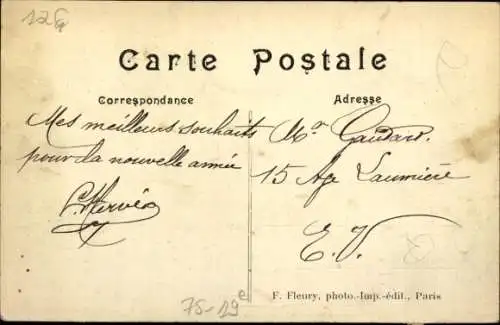 126
Carte Postale
Correspondance
Adresse
Mes meilleurs souhaits
pour la nouvelle année
C. Hervé
Mr Gaudard.
15 Age Laumière
E. V.
F. Fleury, photo.-Imp.-édit., Paris
75-19e